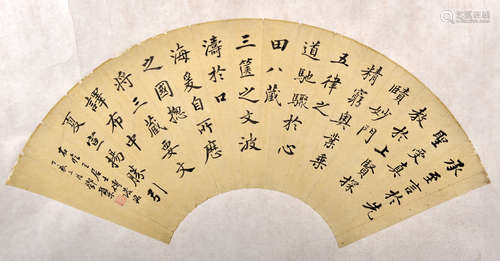 承至言於先
聖受真
教於上賢探
賾妙門
精窮奧業乘
五律之
道馳驟於心
田八藏
三篋之文波
濤於口
海爰自所應
之國揔
將三藏要文
譯布中
夏宣揚勝引